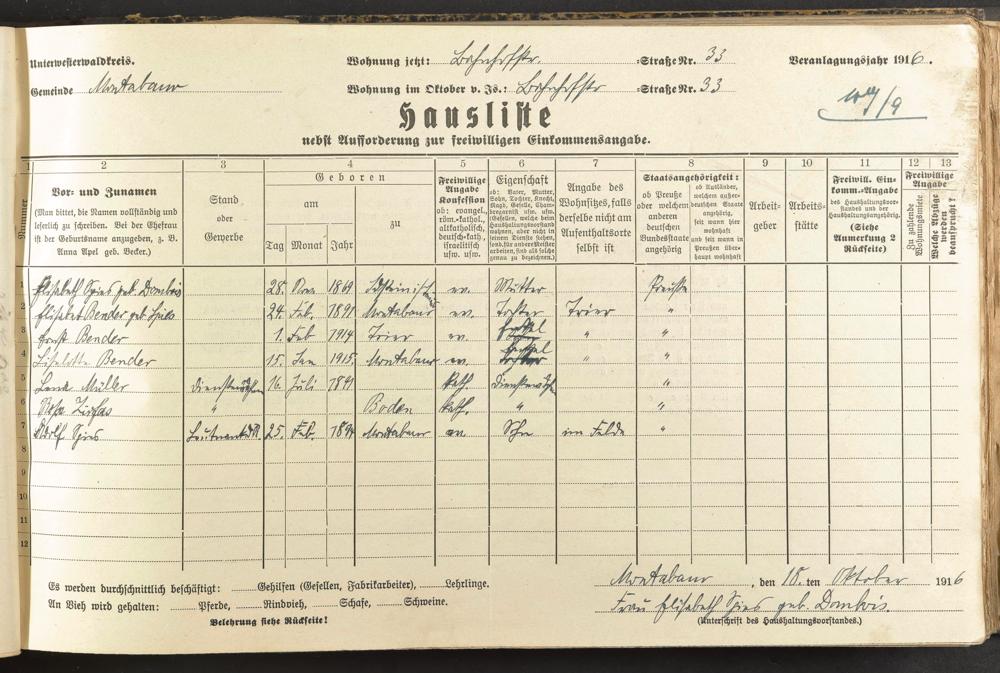 Unterwesterwaldkreis.
Wohnung jetzt: Bahnhofstr. Straße Nr. 33
Veranlagungsjahr 1916.
Gemeinde Montabaur
Wohnung im Oktober v. Js.: Bahnhofstr Straße Nr. 33
Hausliste
nebst Aufforderung zur freiwilligen Einkommensangabe.
1 2 3 4 5 6 7 8 9 10 11 12 13
Nummer
Vor- und Zunamen
(Man bittet, die Namen vollständig und
leserlich zu schreiben. Bei der Ehefrau
ist der Geburtsname anzugeben, z. B.
Anna Apel geb. Becker.)
Stand
oder
Gewerbe
Geboren
am
zu
Tag Monat Jahr
Freiwillige
Angabe
Konfession
ob: evangel.,
röm.-kathol.,
altkatholisch,
deutsch-kath.,
israelitisch
usw. usw.
Eigenschaft
ob: Vater, Mutter,
Sohn, Tochter, Knecht,
Magd, Geselle, Cham-
bregarnist usw. usw.
(Gesellen, welche beim
Haushaltungsvorstand
wohnen, aber nicht in
seinem Dienste stehen,
sond. für andere Meister
arbeiten, sind als solche
genau zu bezeichnen.)
Angabe des
Wohnsitzes, falls
derselbe nicht am
Aufenthaltsorte
selbst ist
Staatsangehörigkeit:
ob Preuße
oder welchem
anderen
deutschen
Bundesstaate
angehörig
ob Ausländer,
welchem außer-
deutschen Staate
angehörig,
seit wann hier
wohnhaft
und seit wann in
Preußen über-
haupt wohnhaft
Arbeit-
geber
Arbeits-
stätte
Freiwill. Ein-
komm.-Angabe
des Haushaltungsvor-
standes und der
Haushaltungsangehörig.
(Siehe
Anmerkung 2
Rückseite)
Freiwillige
Angabe
Zu zahlende
Wohnungsmiete
Welche Abzüge
werden
beansprucht?
1 Elisabeth Spies geb. Dombois 28. 1869 Idstein ev. Mutter Preuße
2 Elisabet Bender geb. Spies 24. Feb. 1891 Montabaur ev. Tochter Trier "
3 Ernst Bender 1. Feb 1914 Trier ev. Enkel " "
4 Liselotte Bender 15. Jan 1915. Montabaur ev. Enkel " "
5 Lena Müller 16. Juli 1891 kath. "
6 Rosa " Boden kath. " "
7 Adolf Spies 25. Feb. 1894 Montabaur ev. Sohn im Felde "
8
9
10
11
12
Es werden durchschnittlich beschäftigt: Gehilfen (Gesellen, Fabrikarbeiter), Lehrlinge.
An Vieh wird gehalten: Pferde, Rindvieh, Schafe, Schweine.
Belehrung siehe Rückseite!
Montabaur, den 18.ten Oktober 1916
Frau Elisabeth Spies geb. Dombois.
(Unterschrift des Haushaltungsvorstandes.)